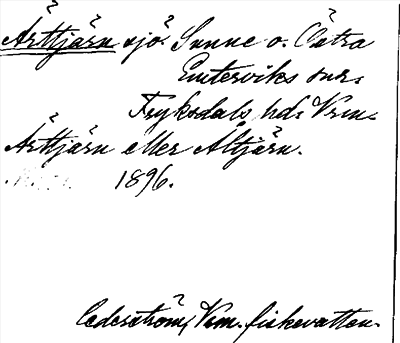 Ärttjärn sjö. Sunne o. Östra
Emterviks snr.
Fryksdals hd. Vrm.
Ärttjärn eller Altjärn.
1896.
Cederström, Vrm. fiskevatten.